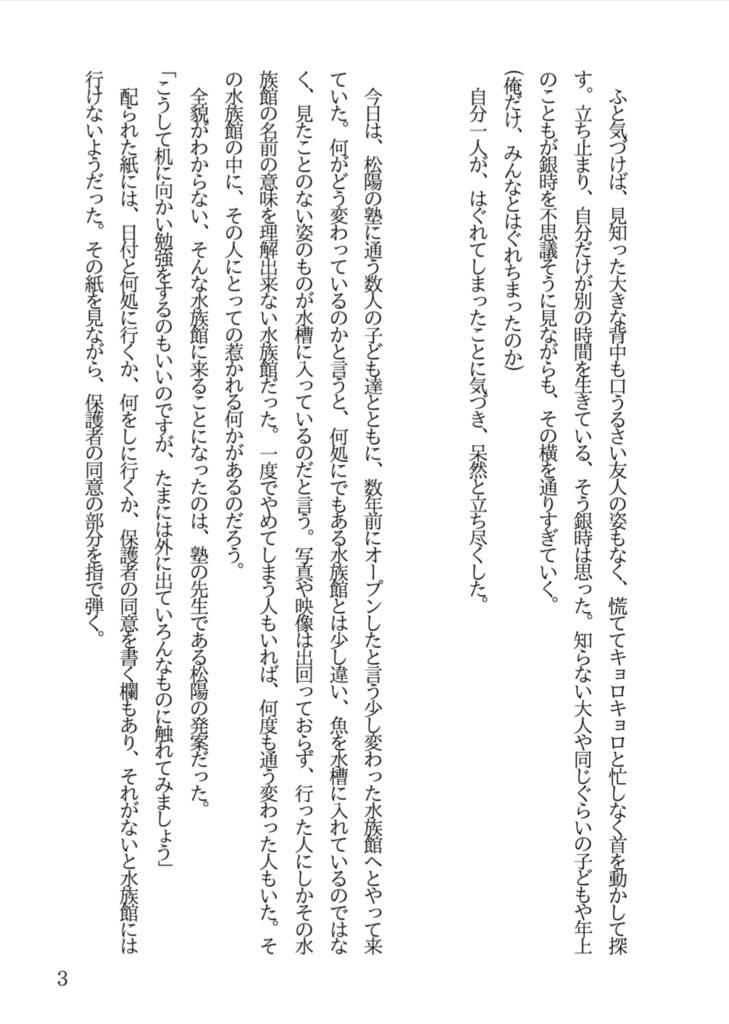 ふと気づけば、見知った大きな背中も口うるさい友人の姿もなく、慌ててキョロキョロと忙しなく首を動かして探
す。立ち止まり、自分だけが別の時間を生きている、そう銀時は思った。知らない大人や同じぐらいの子どもや年上
のこどもが銀時を不思議そうに見ながらも、その横を通りすぎていく。
(俺だけ、みんなとはぐれちまったのか)
自分一人が、はぐれてしまったことに気づき、呆然と立ち尽くした。
今日は、松陽の塾に通う数人の子ども達とともに、数年前にオープンしたと言う少し変わった水族館へとやって来
ていた。何がどう変わっているのかと言うと、何処にでもある水族館とは少し違い、魚を水槽に入れているのではな
く、見たことのない姿のものが水槽に入っているのだと言う。写真や映像は出回っておらず、行った人にしかその水
族館の名前の意味を理解出来ない水族館だった。一度でやめてしまう人もいれば、何度も通う変わった人もいた。そ
の水族館の中に、その人にとっての惹かれる何かがあるのだろう。
全貌がわからない、そんな水族館に来ることになったのは、塾の先生である松陽の発案だった。
「こうして机に向かい勉強をするのもいいのですが、たまには外に出ていろんなものに触れてみましょう」
配られた紙には、日付と何処に行くか、何をしに行くか、保護者の同意を書く欄もあり、それがないと水族館には
行けないようだった。その紙を見ながら、保護者の同意の部分を指で弾く。
3